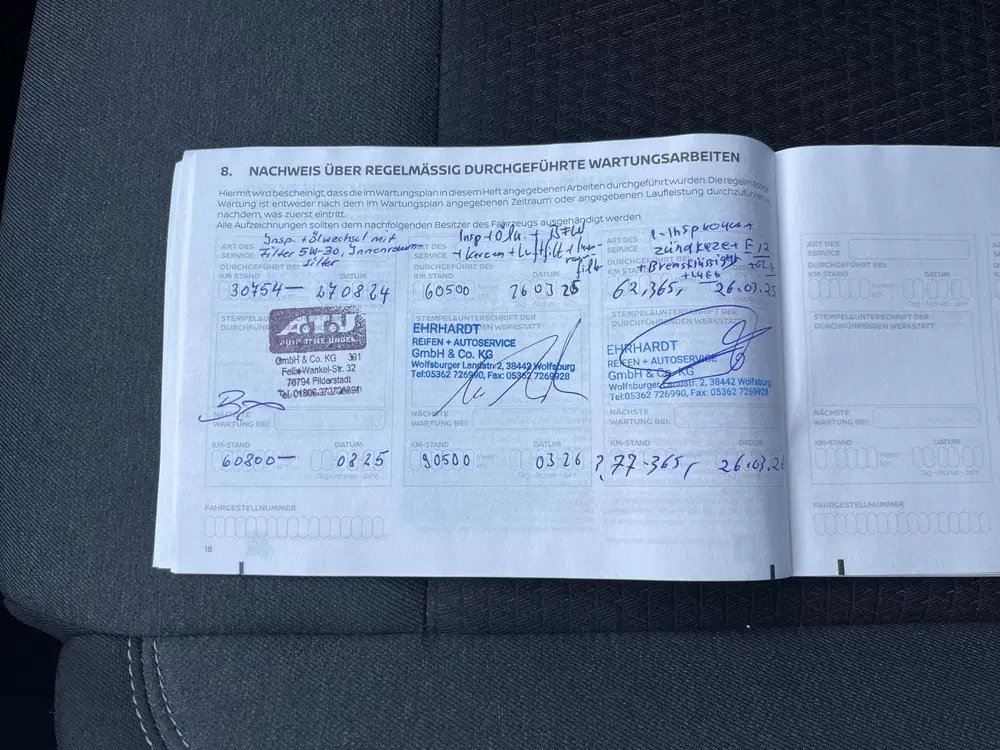 8. NACHWEIS ÜBER REGELMÄSSIG DURCHGEFÜHRTE WARTUNGSARBEITEN
Hiermit wird bescheinigt, dass die im Wartungsplan in diesem Heft angegebenen Arbeiten durchgeführt wurden. Die regelmässige
Wartung ist entweder nach dem im Wartungsplan angegebenen Zeitraum oder angegebene Laufleistung durchzuführen,
nachdem, was zuerst eintritt.
Alle Aufzeichnungen sollten dem nachfolgenden Besitzer des Fahrzeugs ausgehändigt werden
ART DES
SERVICE
Insp. + Ölwechsel mit
Filter 5W-30, Innenraum
filter
DURCHGEFÜHRT BEI:
KM STAND DATUM
30754 — 270824
STEMPEL
DURCHFÜH
A.T.U
GmbH & Co. KG 391
Felix-Wankel-Str. 32
70794 Filderstadt
NÄCHSTE
WARTUNG BEI:
KM-STAND DATUM
60800 — 0825
Tag - Monat - Jahr
FAHRGESTELLNUMMER
18
ART DES
SERVICE
DURCHGEFÜHRT BEI:
KM STAND DATUM
60500 260325
STEMPEL&UNTERSCHRIFT DER
DURCHFÜHRENDEN WERKSTATT
EHRHARDT
REIFEN + AUTOSERVICE
GmbH & Co. KG
Wolfsburger Landstr. 2, 38442 Wolfsburg
Tel:05362 726990, Fax: 05362 7269928
NÄCHSTE
WARTUNG BEI:
KM-STAND Meilen DATUM
90500 km 0326
Tag - Monat - Jahr
ART DES
SERVICE
DURCHGEFÜHRT BEI:
KM STAND
62,365, 26.03.25
STEMPEL&UNTERSCHRIFT DER
DURCHFÜHRENDEN WERKSTATT
EHRHARDT
REIFEN + AUTOSERVICE
GmbH & Co. KG
Wolfsburger Landstr. 2, 38442 Wolfsburg
Tel:05362 726990, Fax: 05362 7269928
NÄCHSTE
WARTUNG BEI:
KM-STAND DATUM
? 77.365, 26.03.26
Tag - Monat - Jahr
ART DES
SERVICE
DURCHGEFÜHRT BEI:
KM STAND Meilen DATUM
km
Tag - Monat - Jahr
STEMPEL&UNTERSCHRIFT DER
DURCHFÜHRENDEN WERKSTATT
NÄCHSTE
WARTUNG BEI:
KM-STAND Meilen DATUM
km
Tag - Monat - Jahr
FAHRGESTELLNUMMER